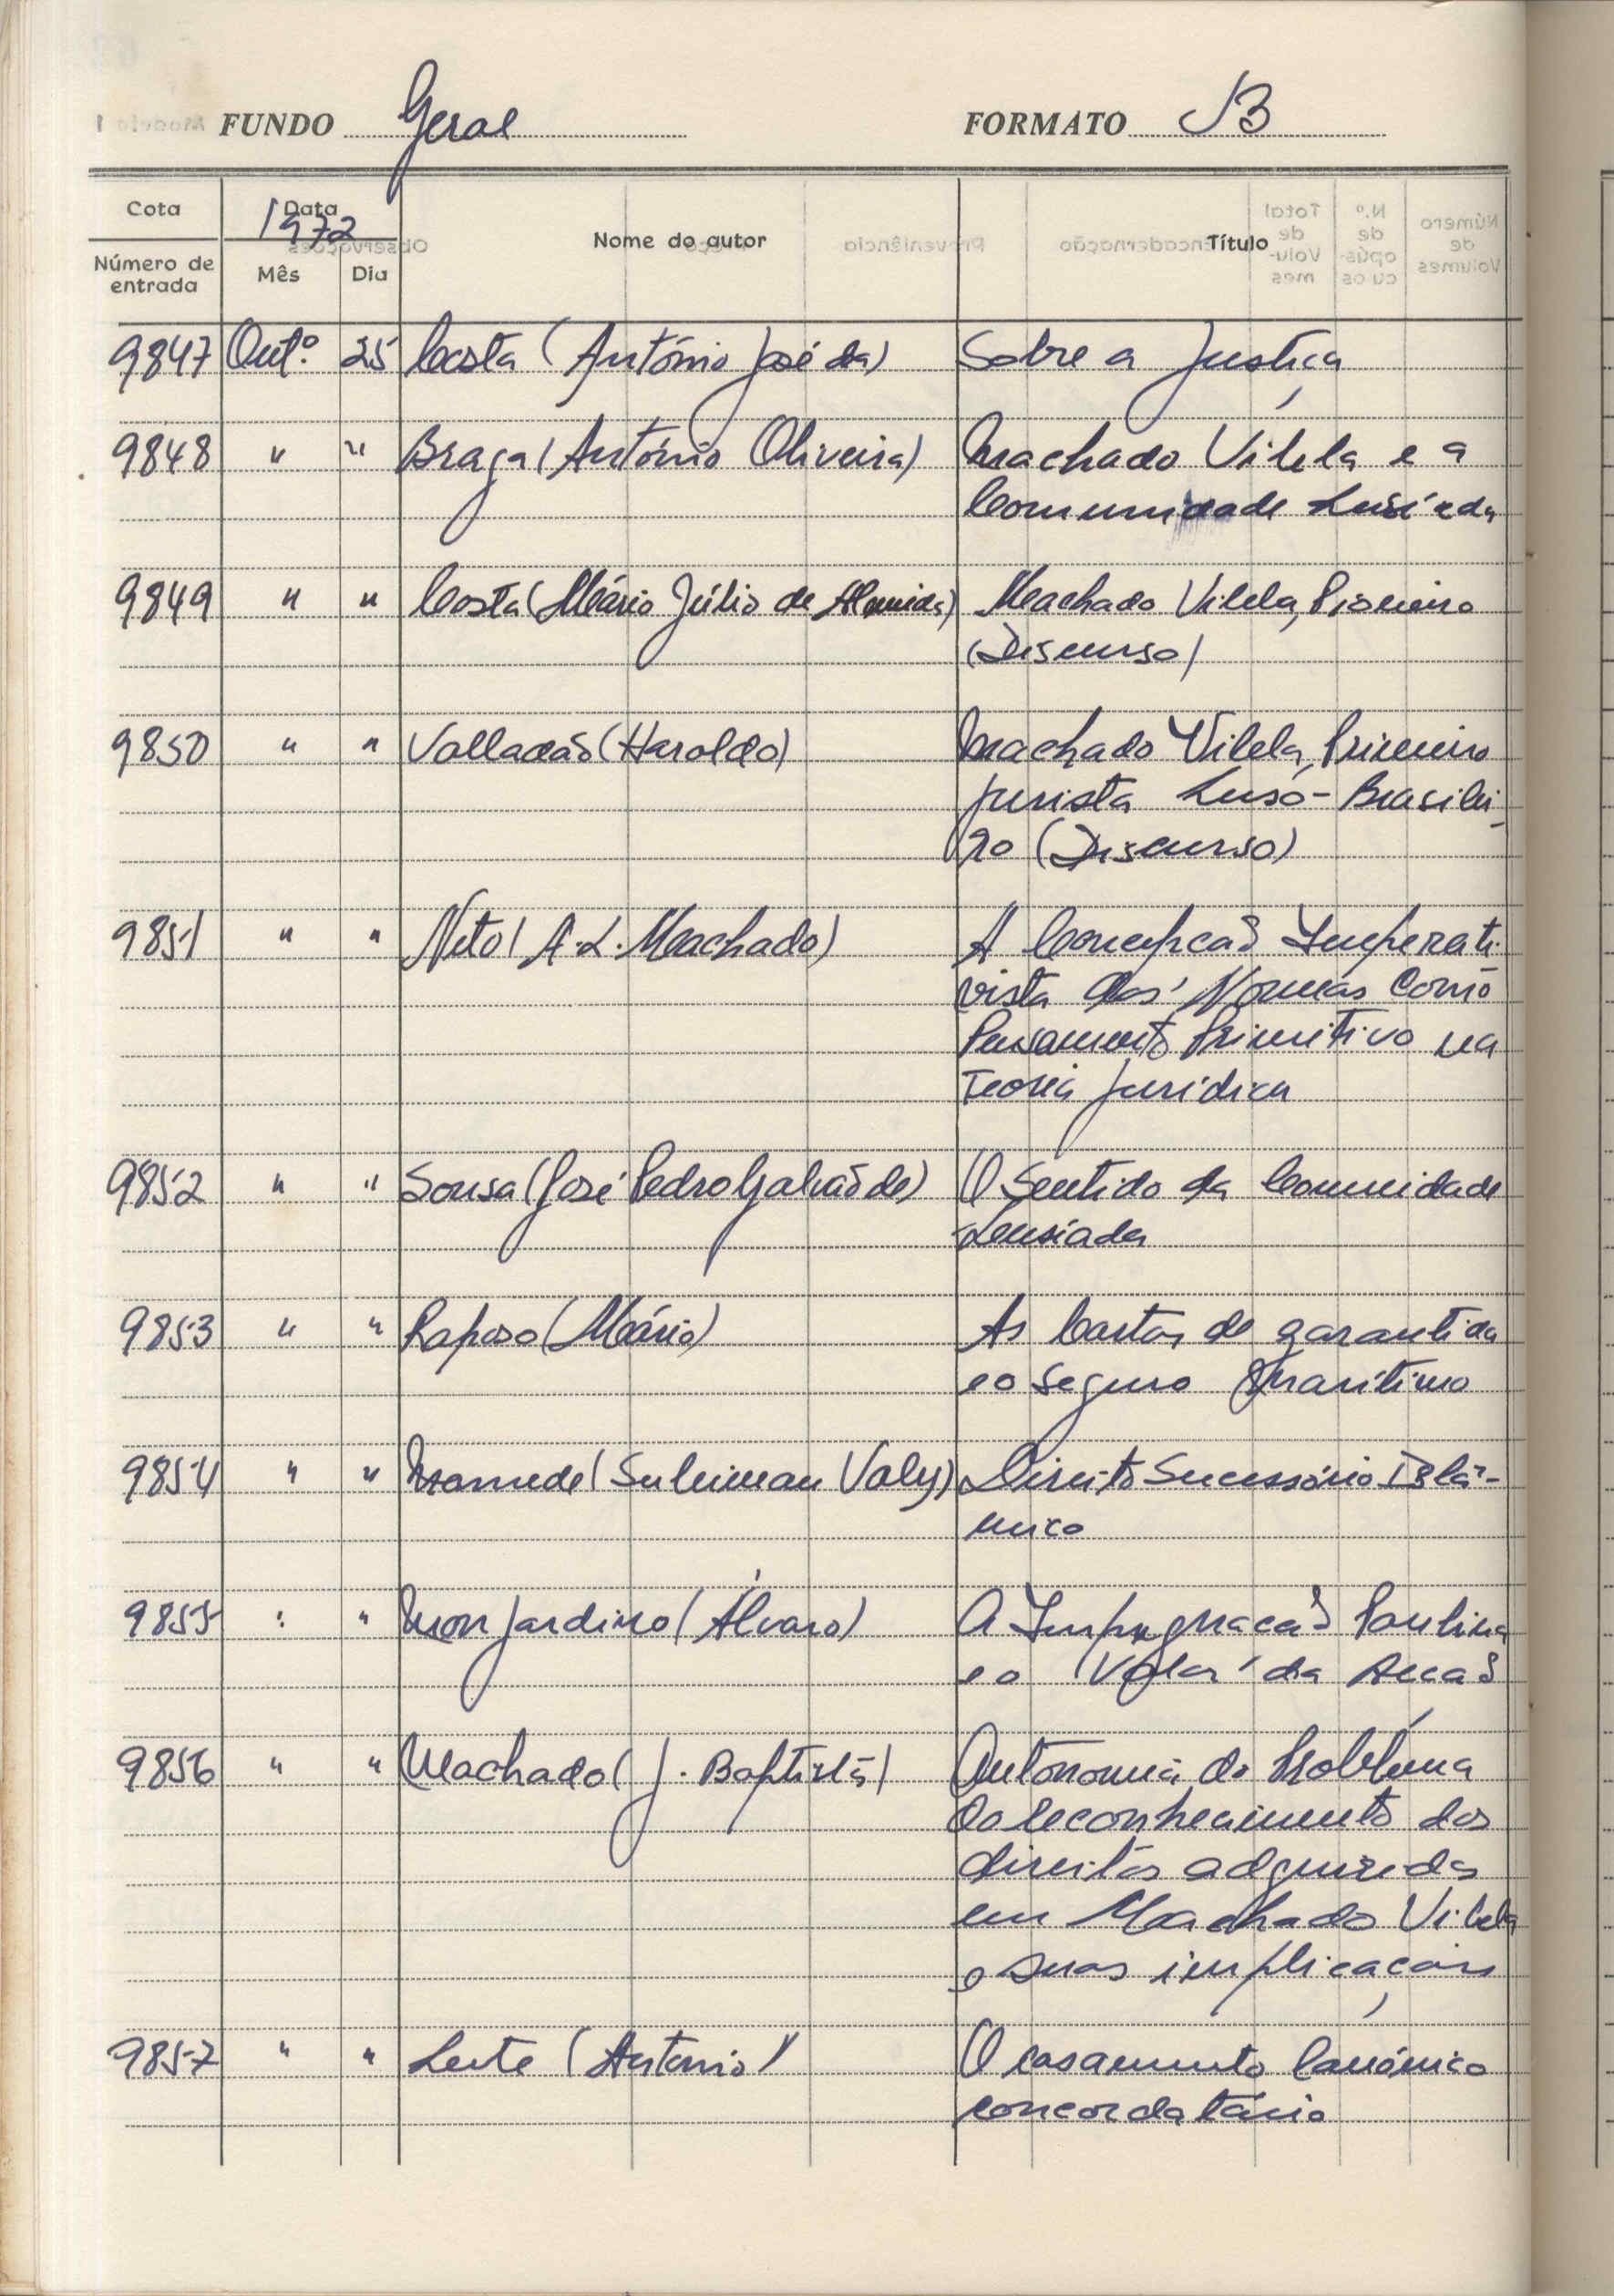 FUNDO Geral FORMATO B
Cota Data 1972 Nome do autor Título
Número de entrada Mês Dia
9847 Outº. 25 Costa (António José da) Sobre a Justiça
9848 " " Braga (António Oliveira) Machado Vilela e a
Comunidade Lusíada
9849 " " Costa (Mário Júlio de Almeida) Machado Vilela, Pioneiro
(Discurso)
9850 " " Valladão (Haroldo) Machado Vilela, Primeiro
Jurista Luso-Brasilei-
ro (Discurso)
9851 " " Neto (A. L. Machado) A Concepção Imperati-
vista das Normas Como
Pensamento Primitivo na
Teoria Jurídica
9852 " " Sousa (José Pedro Galvão de) O Sentido da Comunidade
Lusíada
9853 " " Raposo (Mário) As Cartas de garantida
e o seguro Marítimo
9854 " " Mamede (Suleiman Valy) Direito Sucessório Islâ-
mico
9855 " " Monjardino (Álvaro) A Impugnação Pauliana
e o Valor da Acção
9856 " " Machado (J. Baptista) Autonomia do Problema
do reconhecimento dos
direitos adquiridos
em Machado Vilela
e suas implicações
9857 " " Leite (António) O casamento Canónico
concordatário